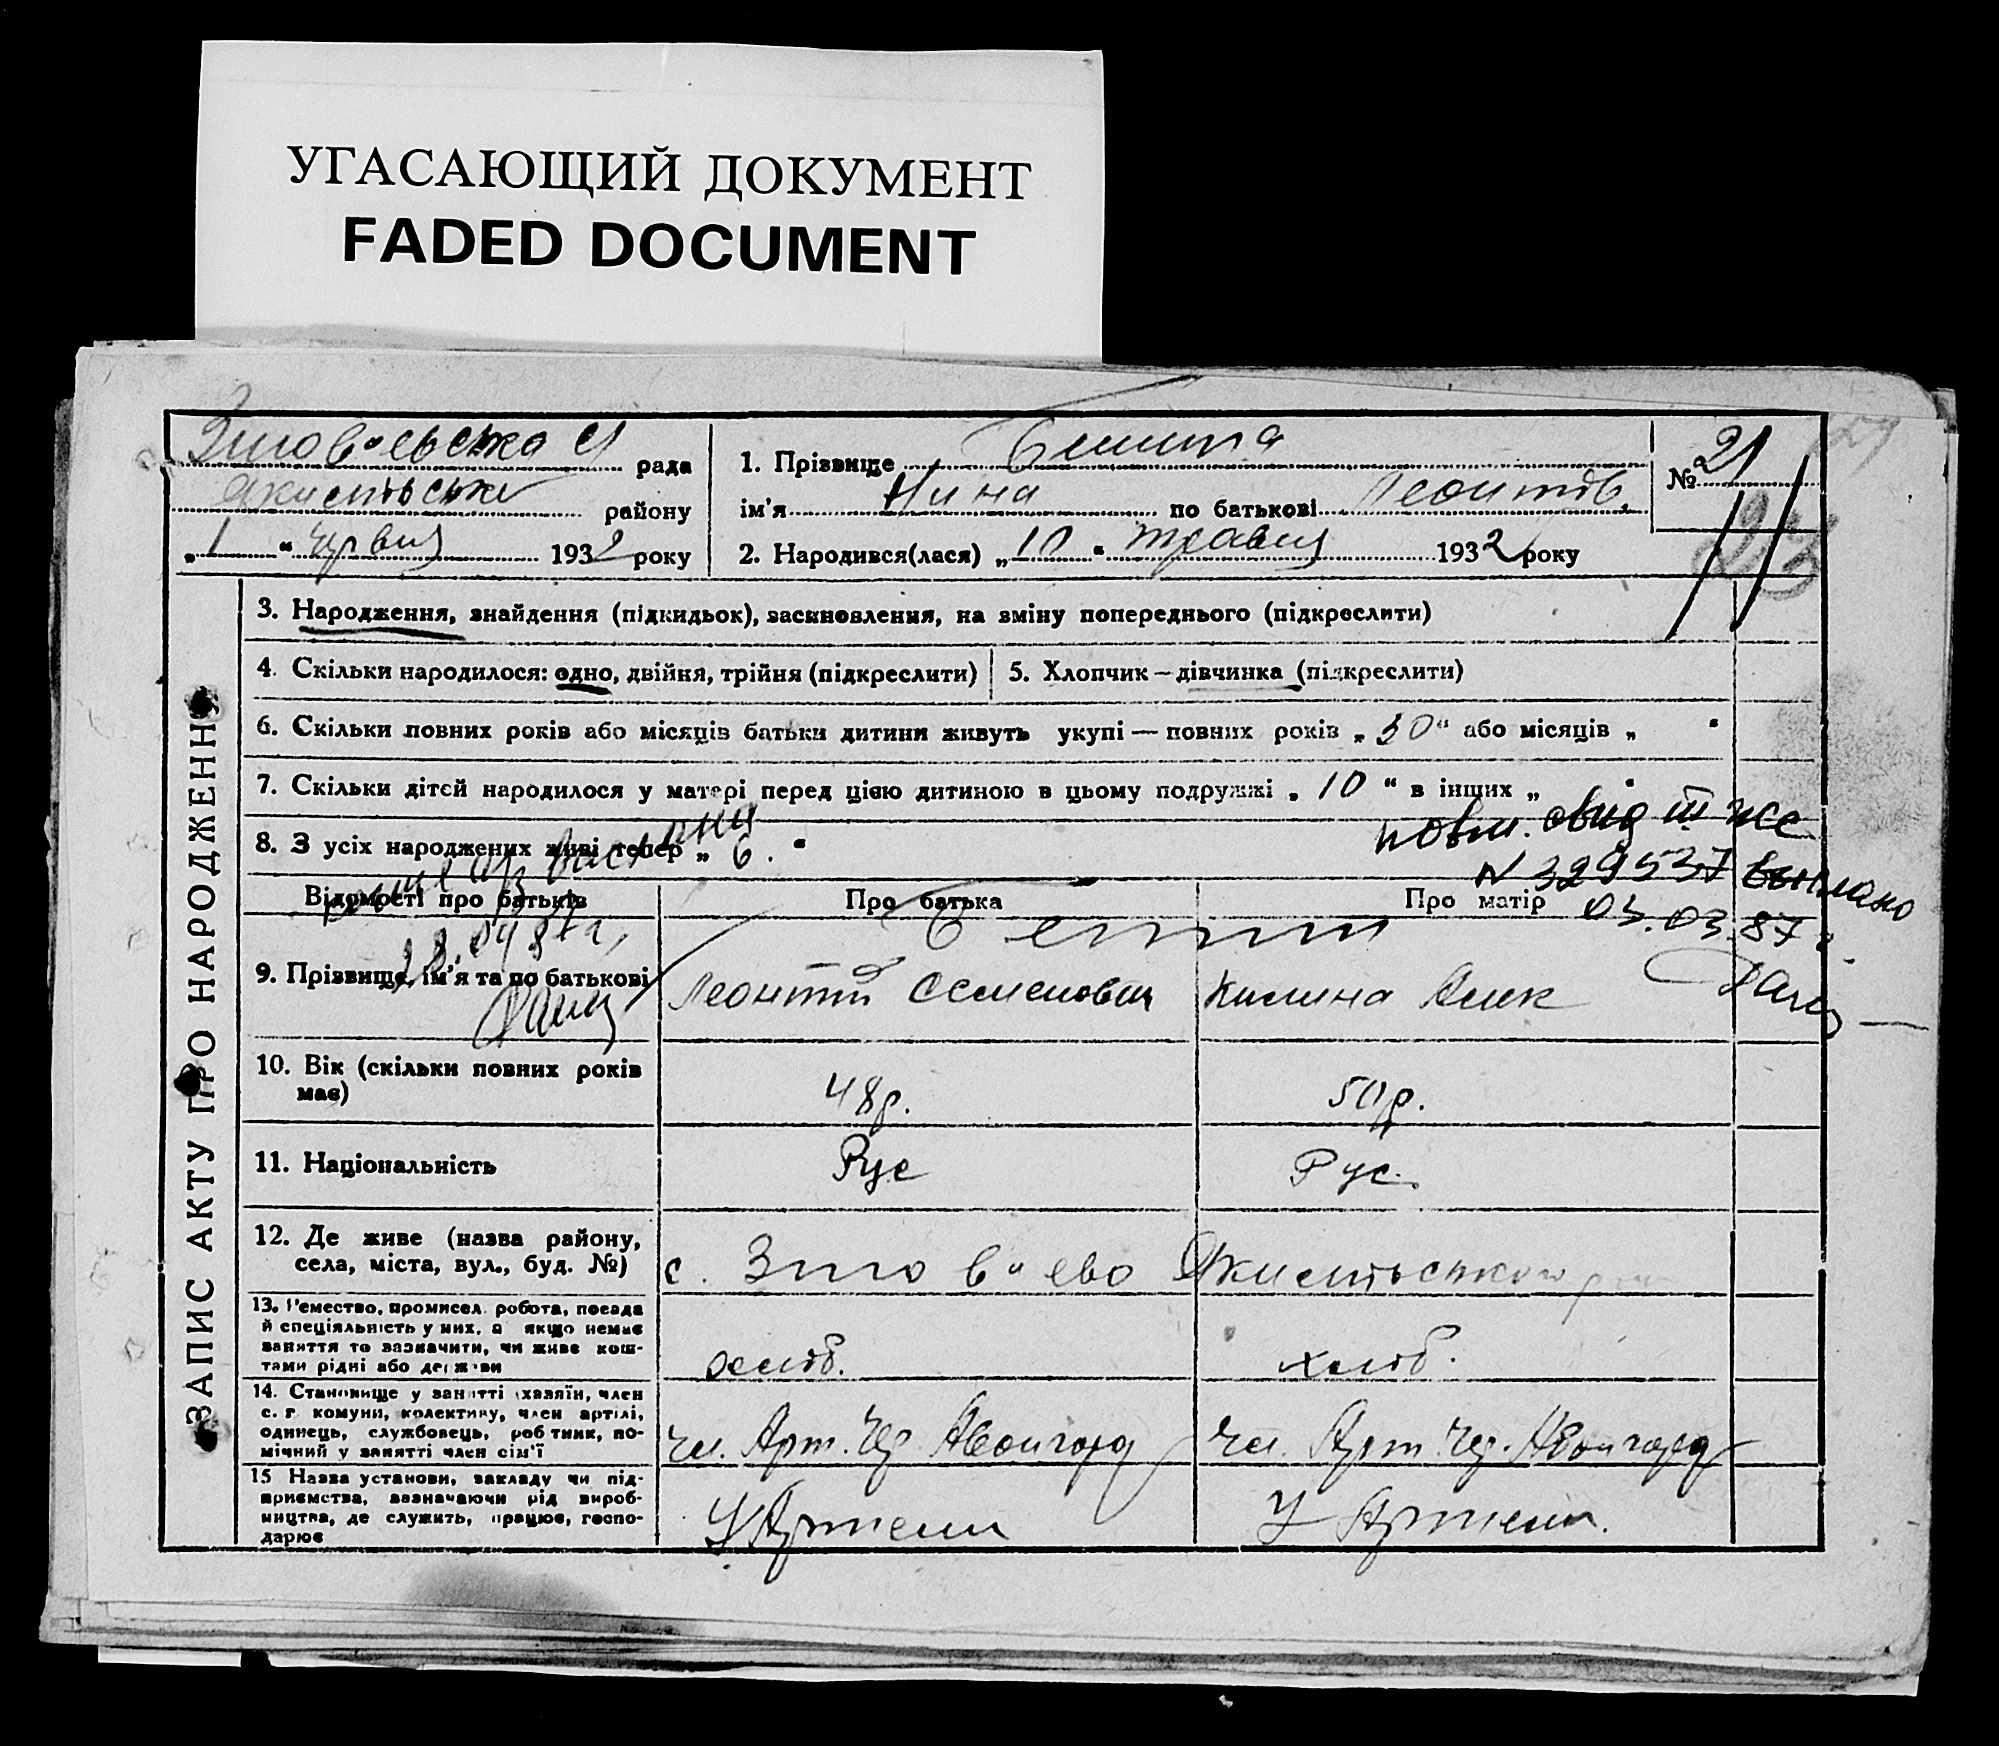 УГАСАЮЩИЙ ДОКУМЕНТ
FADED DOCUMENT
рада
району
„ 1 “ червня 1932 року
1. Прізвище
ім'я Нина по батькові Леонтов.
2. Народився(лася) „ 10 “ травня 1932 року
№ 21
23
ЗАПИС АКТУ ПРО НАРОДЖЕННЯ
3. Народження, знайдення (підкидьок), засиновлення, на зміну попереднього (підкреслити)
4. Скільки народилося: одно, двійня, трійня (підкреслити)
5. Хлопчик – дівчинка (підкреслити)
6. Скільки повних років або місяців батьки дитини живуть укупі — повних років „ 30 “ або місяців „ “
7. Скільки дітей народилося у матері перед цією дитиною в цьому подружжі „ 10 “ в інших „ “
8. З усіх народжених живі тепер „ 6. “
повт. свид
N 329537 выслано
03.03.87г.
Відомості про батьків
Про батька
Про матір
9. Прізвище, ім'я та по батькові
Леонтій Семенович
Килина
10. Вік (скільки повних років має)
48р.
50р.
11. Національність
Рус
Рус.
12. Де живе (назва району, села, міста, вул., буд. №)
с.
13. Ремество, промисел, робота, посада й спеціяльність у них, а якщо немає заняття то зазначити, чи живе коштами рідні або держави
хліб.
хліб.
14. Становище у занятті (хазяїн, член с. г. комуни, колективу, член артілі, одинець, службовець, робітник, помічний у занятті член сім'ї
чл. Арт. Чер. Авангард
чл. Арт. Чер. Авангард
15 Назва установи, закладу чи підприємства, зазначаючи рід виробництва, де служить, працює, господарює
У Артели
У Артели.